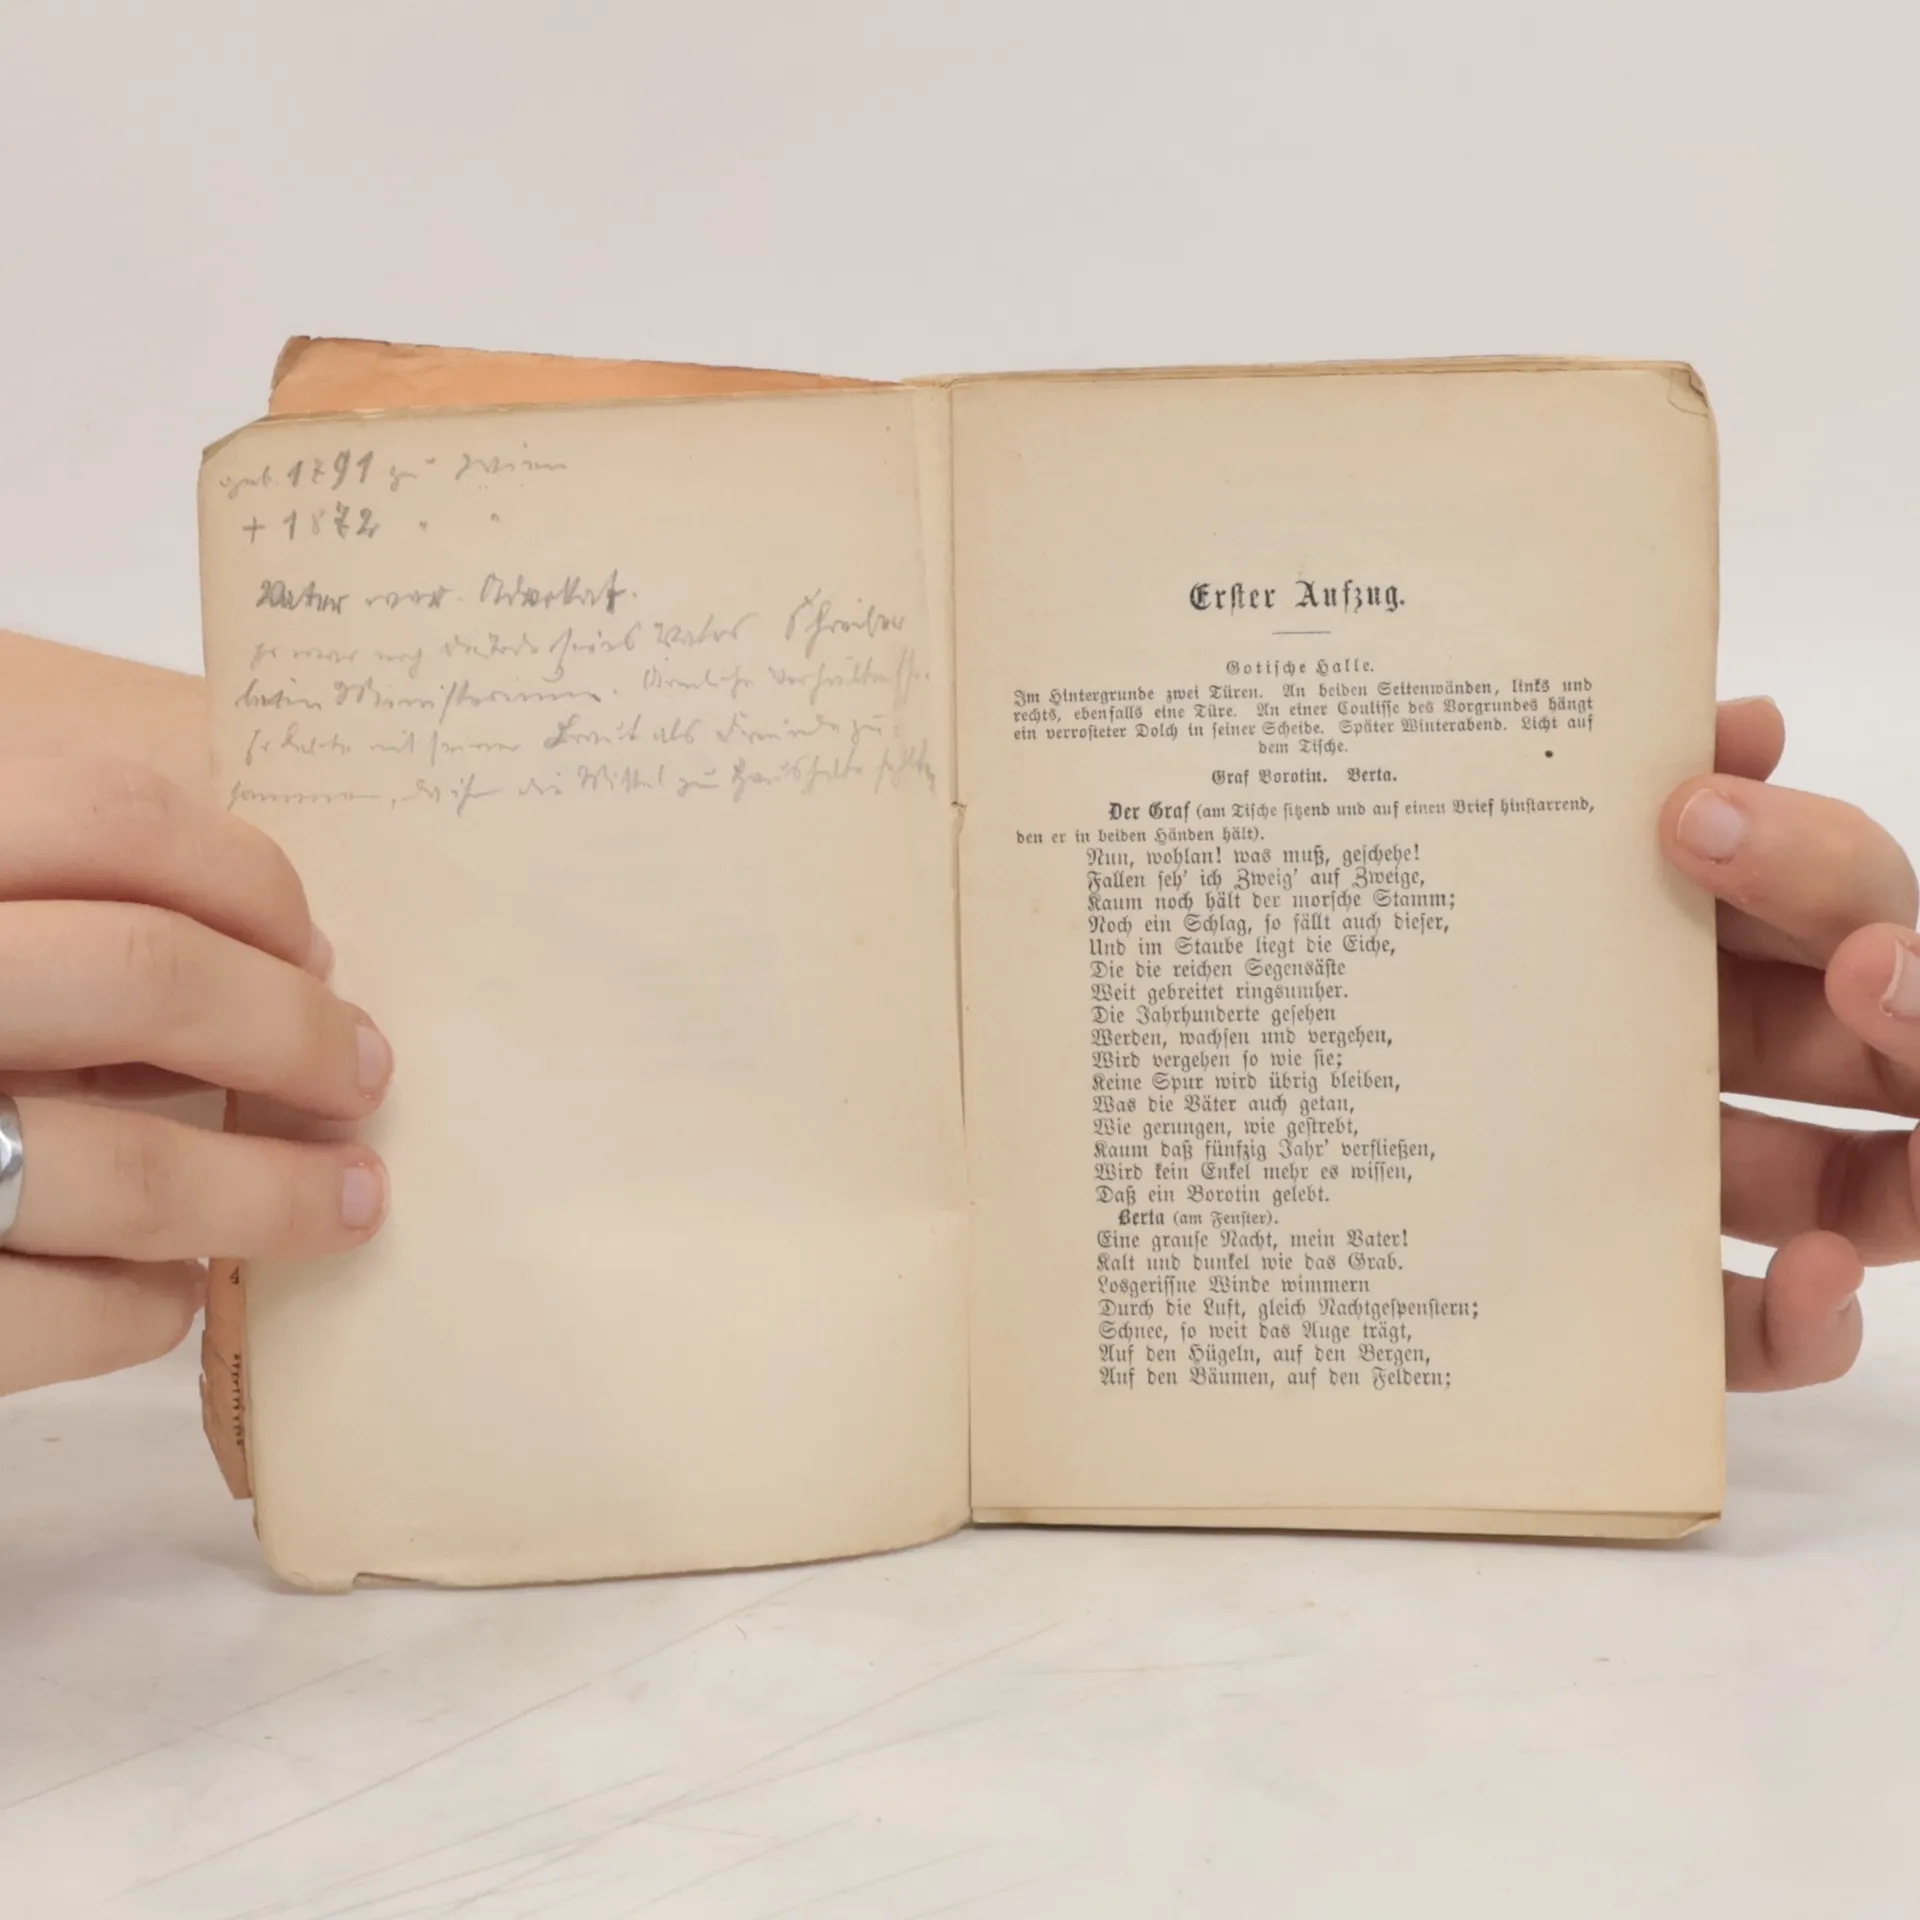 geb. 1791 zu Wien
+ 1872 " "
Vater war Advokat.
Er war nach dem Tode seines Vaters Schreiber
beim Ministerium. Ärmliche Verhältnisse.
Er lebte mit seiner Braut als Freunde zu-
sammen, da ihm die Mittel zu Haushalte fehlten
Erster Aufzug.
Gotische Halle.
Im Hintergrunde zwei Türen. An beiden Seitenwänden, links und
rechts, ebenfalls eine Türe. An einer Coulisse des Vorgrundes hängt
ein verrosteter Dolch in seiner Scheide. Später Winterabend. Licht auf
dem Tische.
Graf Borotin. Berta.
Der Graf (am Tische sitzend und auf einen Brief hinstarrend,
den er in beiden Händen hält).
Nun, wohlan! was muß, geschehe!
Fallen seh' ich Zweig' auf Zweige,
Kaum noch hält der morsche Stamm;
Noch ein Schlag, so fällt auch dieser,
Und im Staube liegt die Eiche,
Die die reichen Segensäste
Weit gebreitet ringsumher.
Die Jahrhunderte gesehen
Werden, wachsen und vergehen,
Wird vergehen so wie sie;
Keine Spur wird übrig bleiben,
Was die Väter auch getan,
Wie gerungen, wie gestrebt,
Kaum daß fünfzig Jahr' verfließen,
Wird kein Enkel mehr es wissen,
Daß ein Borotin gelebt.
Berta (am Fenster).
Eine grause Nacht, mein Vater!
Kalt und dunkel wie das Grab.
Losgerissne Winde wimmern
Durch die Luft, gleich Nachtgespenstern;
Schnee, so weit das Auge trägt,
Auf den Hügeln, auf den Bergen,
Auf den Bäumen, auf den Feldern;